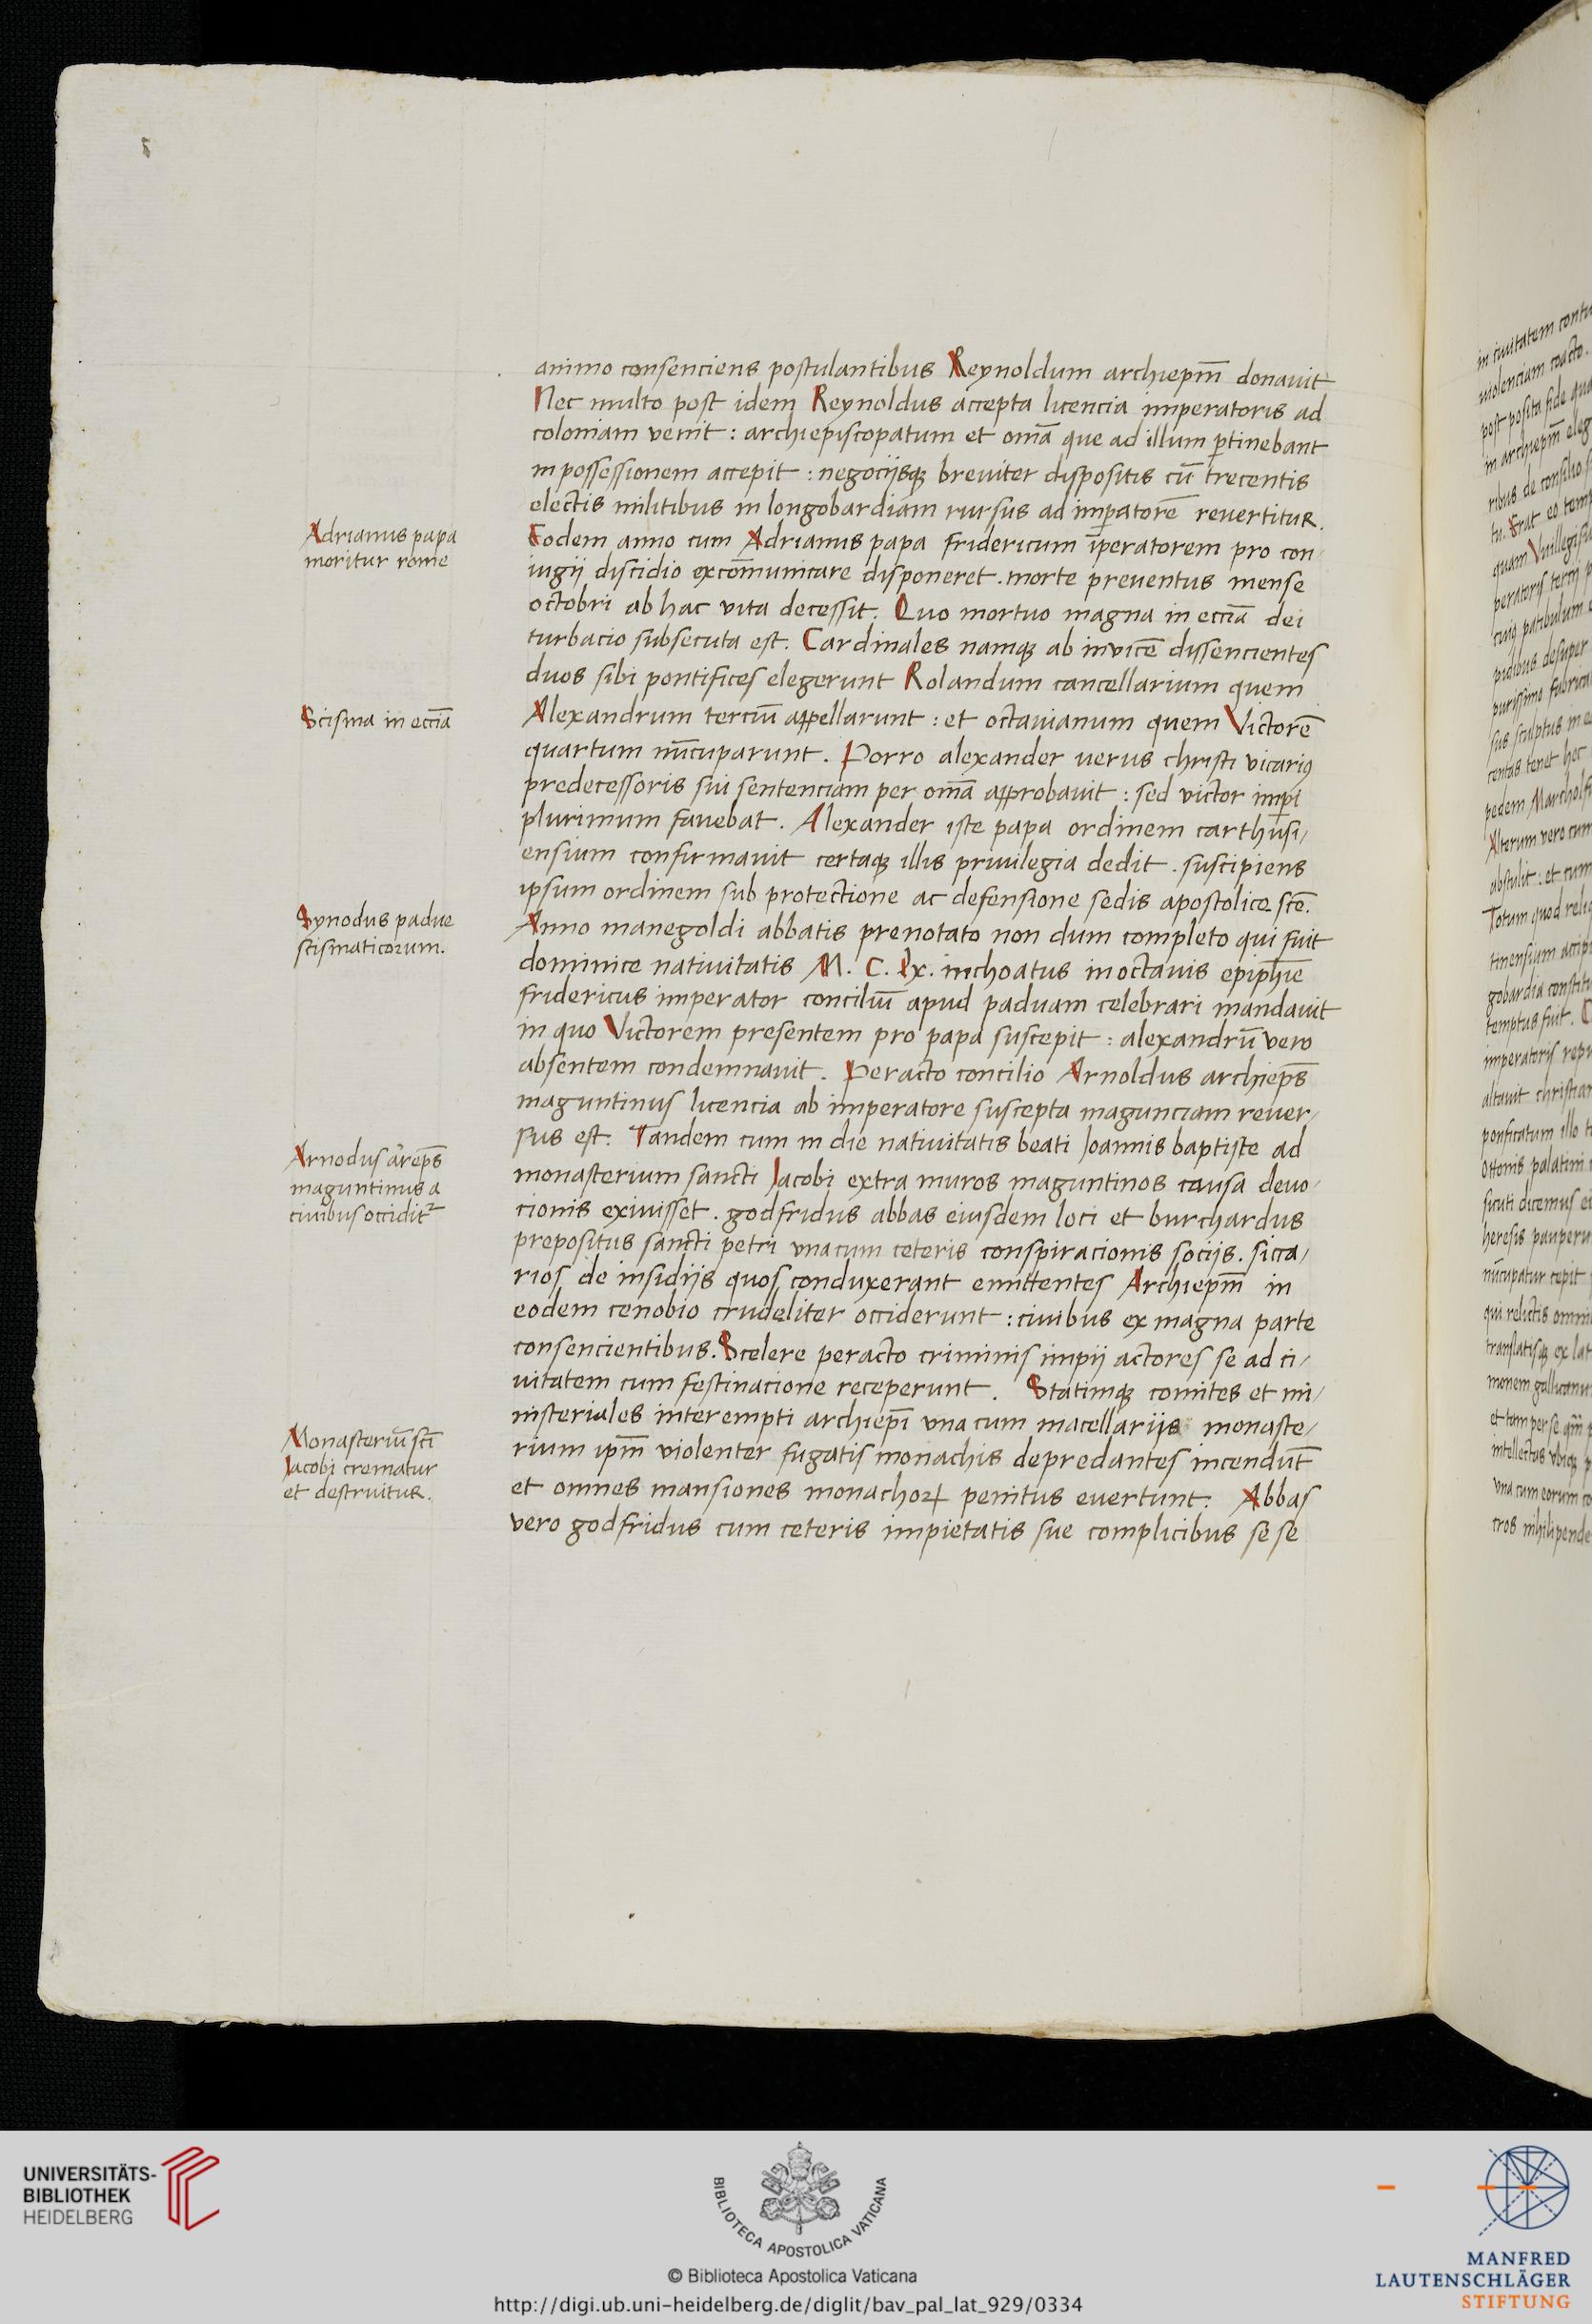 animo consenciens postulantibus Reynoldum archiepm̄ donauit
Nec multo post idem Reynoldus accepta licencia imperatoris ad
coloniam venit : archiepiscopatum et om̄a que ad illum ꝑtinebant
in possessionem accepit : negocijsqꝫ breuiter dispositis cū trecentis
electis militibus in longobardiam rursus ad imꝑatorē reuertitur.
Eodem anno cum Adrianus papa fridericum īperatorem pro con-
iugij discidio excōmunicare disponeret . morte preuentus mense
octobri ab hac vita decessit. Quo mortuo magna in eccīa dei
turbacio subsecuta est. Cardinales namqꝫ ab invicē dissencientes
duos sibi pontifices elegerunt Rolandum cancellarium quem
Alexandrum terciū appellarunt : et octauianum quem Victorē
quartum nūcuparunt. Porro alexander verus christi vicariꝰ
predecessoris sui sentenciam per om̄a approbauit : sed victor imꝑi
plurimum fauebat. Alexander iste papa ordinem carthusi/
ensium confirmauit certaqꝫ illis priuilegia dedit . suscipiens
ipsum ordinem sub protectione ac defensione sedis apostolice stē.
Anno manegoldi abbatis prenotato non dum completo qui fuit
dominice natiuitatis M. C. lx. inchoatus in octauis epiphīe
fridericus imperator conciliū apud paduam celebrari mandauit
in quo Victorem presentem pro papa suscepit : alexandrū vero
absentem condemnauit. Peracto concilio Arnoldus archiep̄s
maguntinus licencia ab imperatore suscepta magunciam reuer/
sus est. Tandem cum in die natiuitatis beati Joannis baptiste ad
monasterium sancti Jacobi extra muros maguntinos causa deuo-
cionis exiuisset . godfridus abbas eiusdem loci et burchardus
prepositus sancti petri vna cum ceteris conspiracionis socijs . sicca/
rios de insidijs quos conduxerant emittentes Archiepm̄ in
eodem cenobio crudeliter occiderunt : ciuibus ex magna parte
consencientibus. Scelere peracto criminis impij actores se ad ci/
uitatem cum festinacione receperunt. Statimqꝫ comites et mi/
nisteriales interempti archiepī vna cum macellarijs monaste/
rium ipm̄ violenter fugatis monachis depredantes incendūt
et omnes mansiones monachoꝝ penitus euertunt. Abbas
vero godfridus cum ceteris impietatis sue complicibus se se
Adrianus papa
moritur rome
Scisma in eccīa
Synodus padue
scismaticorum.
Arnodus arep̄s
maguntinus a
ciuibus occidit᷑
Monasteriū sctī
Jacobi crematur
et destruitur.
UNIVERSITÄTS-
BIBLIOTHEK
HEIDELBERG
BIBLIOTECA APOSTOLICA VATICANA
© Biblioteca Apostolica Vaticana
http://digi.ub.uni-heidelberg.de/diglit/bav_pal_lat_929/0334
MANFRED
LAUTENSCHLÄGER
STIFTUNG